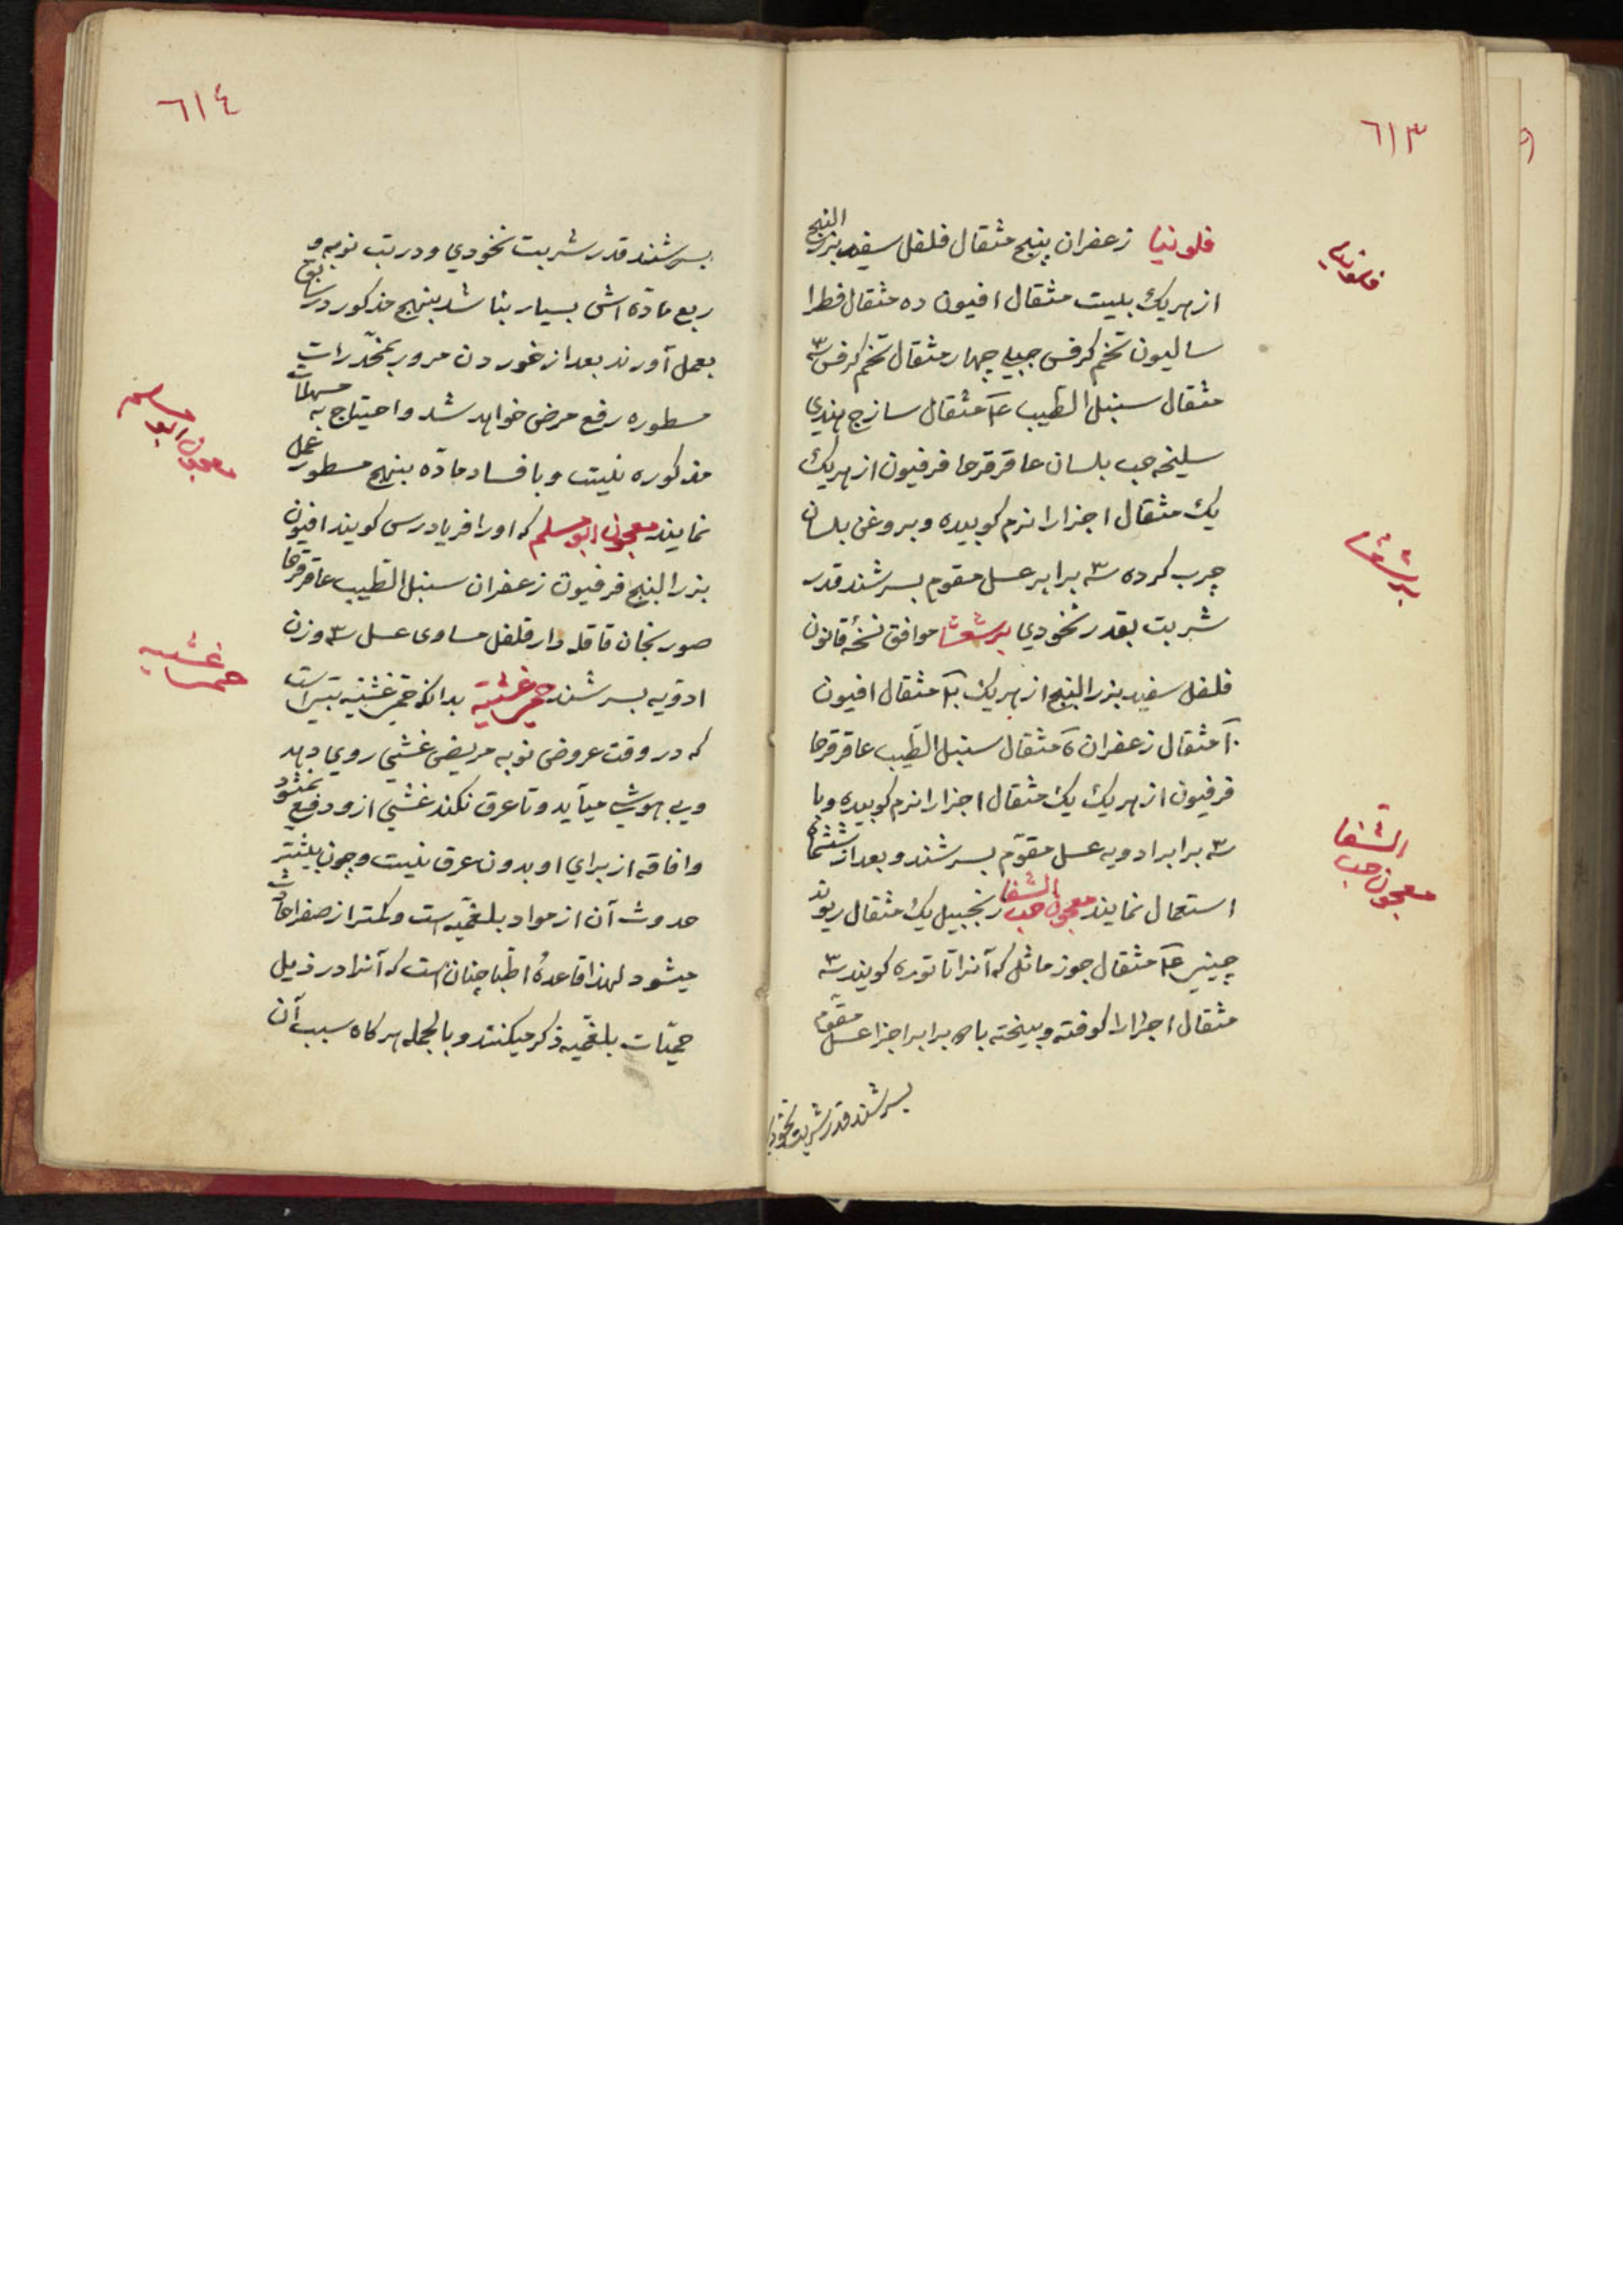 ٦١٣
فلونیا زعفران پنج مثقال فلفل سفید بزر البنج
از هریک بیست مثقال افیون ده مثقال فطرا
سالیون تخم کرفس جبلی چهار مثقال تخم کرفس ٣
مثقال سنبل الطیب مثقال سازج هندی
سلیخه حب بلسان عاقرقرحا فرفیون از هریک
یک مثقال اجزا را نرم کوبیده و بروغن بلسان
چرب کرده ٣ برابر عسل مقوم بسرشند قدر
شربت بقدر نخودی برشعثا موافق نسخهٔ قانون
فلفل سفید بزر البنج از هریک مثقال افیون
مثقال زعفران مثقال سنبل الطیب عاقرقرحا
فرفیون از هریک یک مثقال اجزا را نرم کوبیده و با
٣ برابر ادویه عسل مقوّم بسرشند و بعد از ششماه
استعمال نمایند معجون حب الشفا زنجبیل یک مثقال ریوند
چینی مثقال جوز ماثل که آنرا تاتوره کویند ٣
مثقال اجزا را کوفته و بیخته با ٣ برابر اجزا عسل مقوّم
بسرشند قدر شربت نخودی
فلونیا
برشعثا
معجون حب الشفا
٦١٤
بسرشند قدر شربت نخودی و در تب نوبه و
ربع مادّه اش بسیار بناشد بنهج مذکور در
بعمل آورند بعد از خوردن مرور بمخدّرات
مسطوره رفع مرض خواهد شد و احتیاج به مسهلات
مذکوره نیست و با فساد مادّه بنهج مسطور عمل
نمایند معجون ابومسلم که او را فریادرس کویند افیون
بزر البنج فرفیون زعفران سنبل الطیب عاقرقرحا
صورنجان قاقله دارفلفل مساوی عسل ٣ وزن
ادویه بسرشند حمی غشیّه بدانکه حمی غشیّه تبی است
که در وقت عروض نوبه مریض غشی روی دهد
و بی هوش میآید و تا عرق نکند غشی از و دفع نمیشود
و افاقه از برای او بدون عرق نیست و چون بیشتر
حدوث آن از مواد بلغمیّه است و کمتر از صفرا حادث
میشود لهذا قاعدهٔ اطبا چنان است که آنرا در ذیل
حمیّات بلغمّیه ذکر میکنند و بالجمله هرکاه سبب آن
معجون ابو مسلم
حمی غشیه